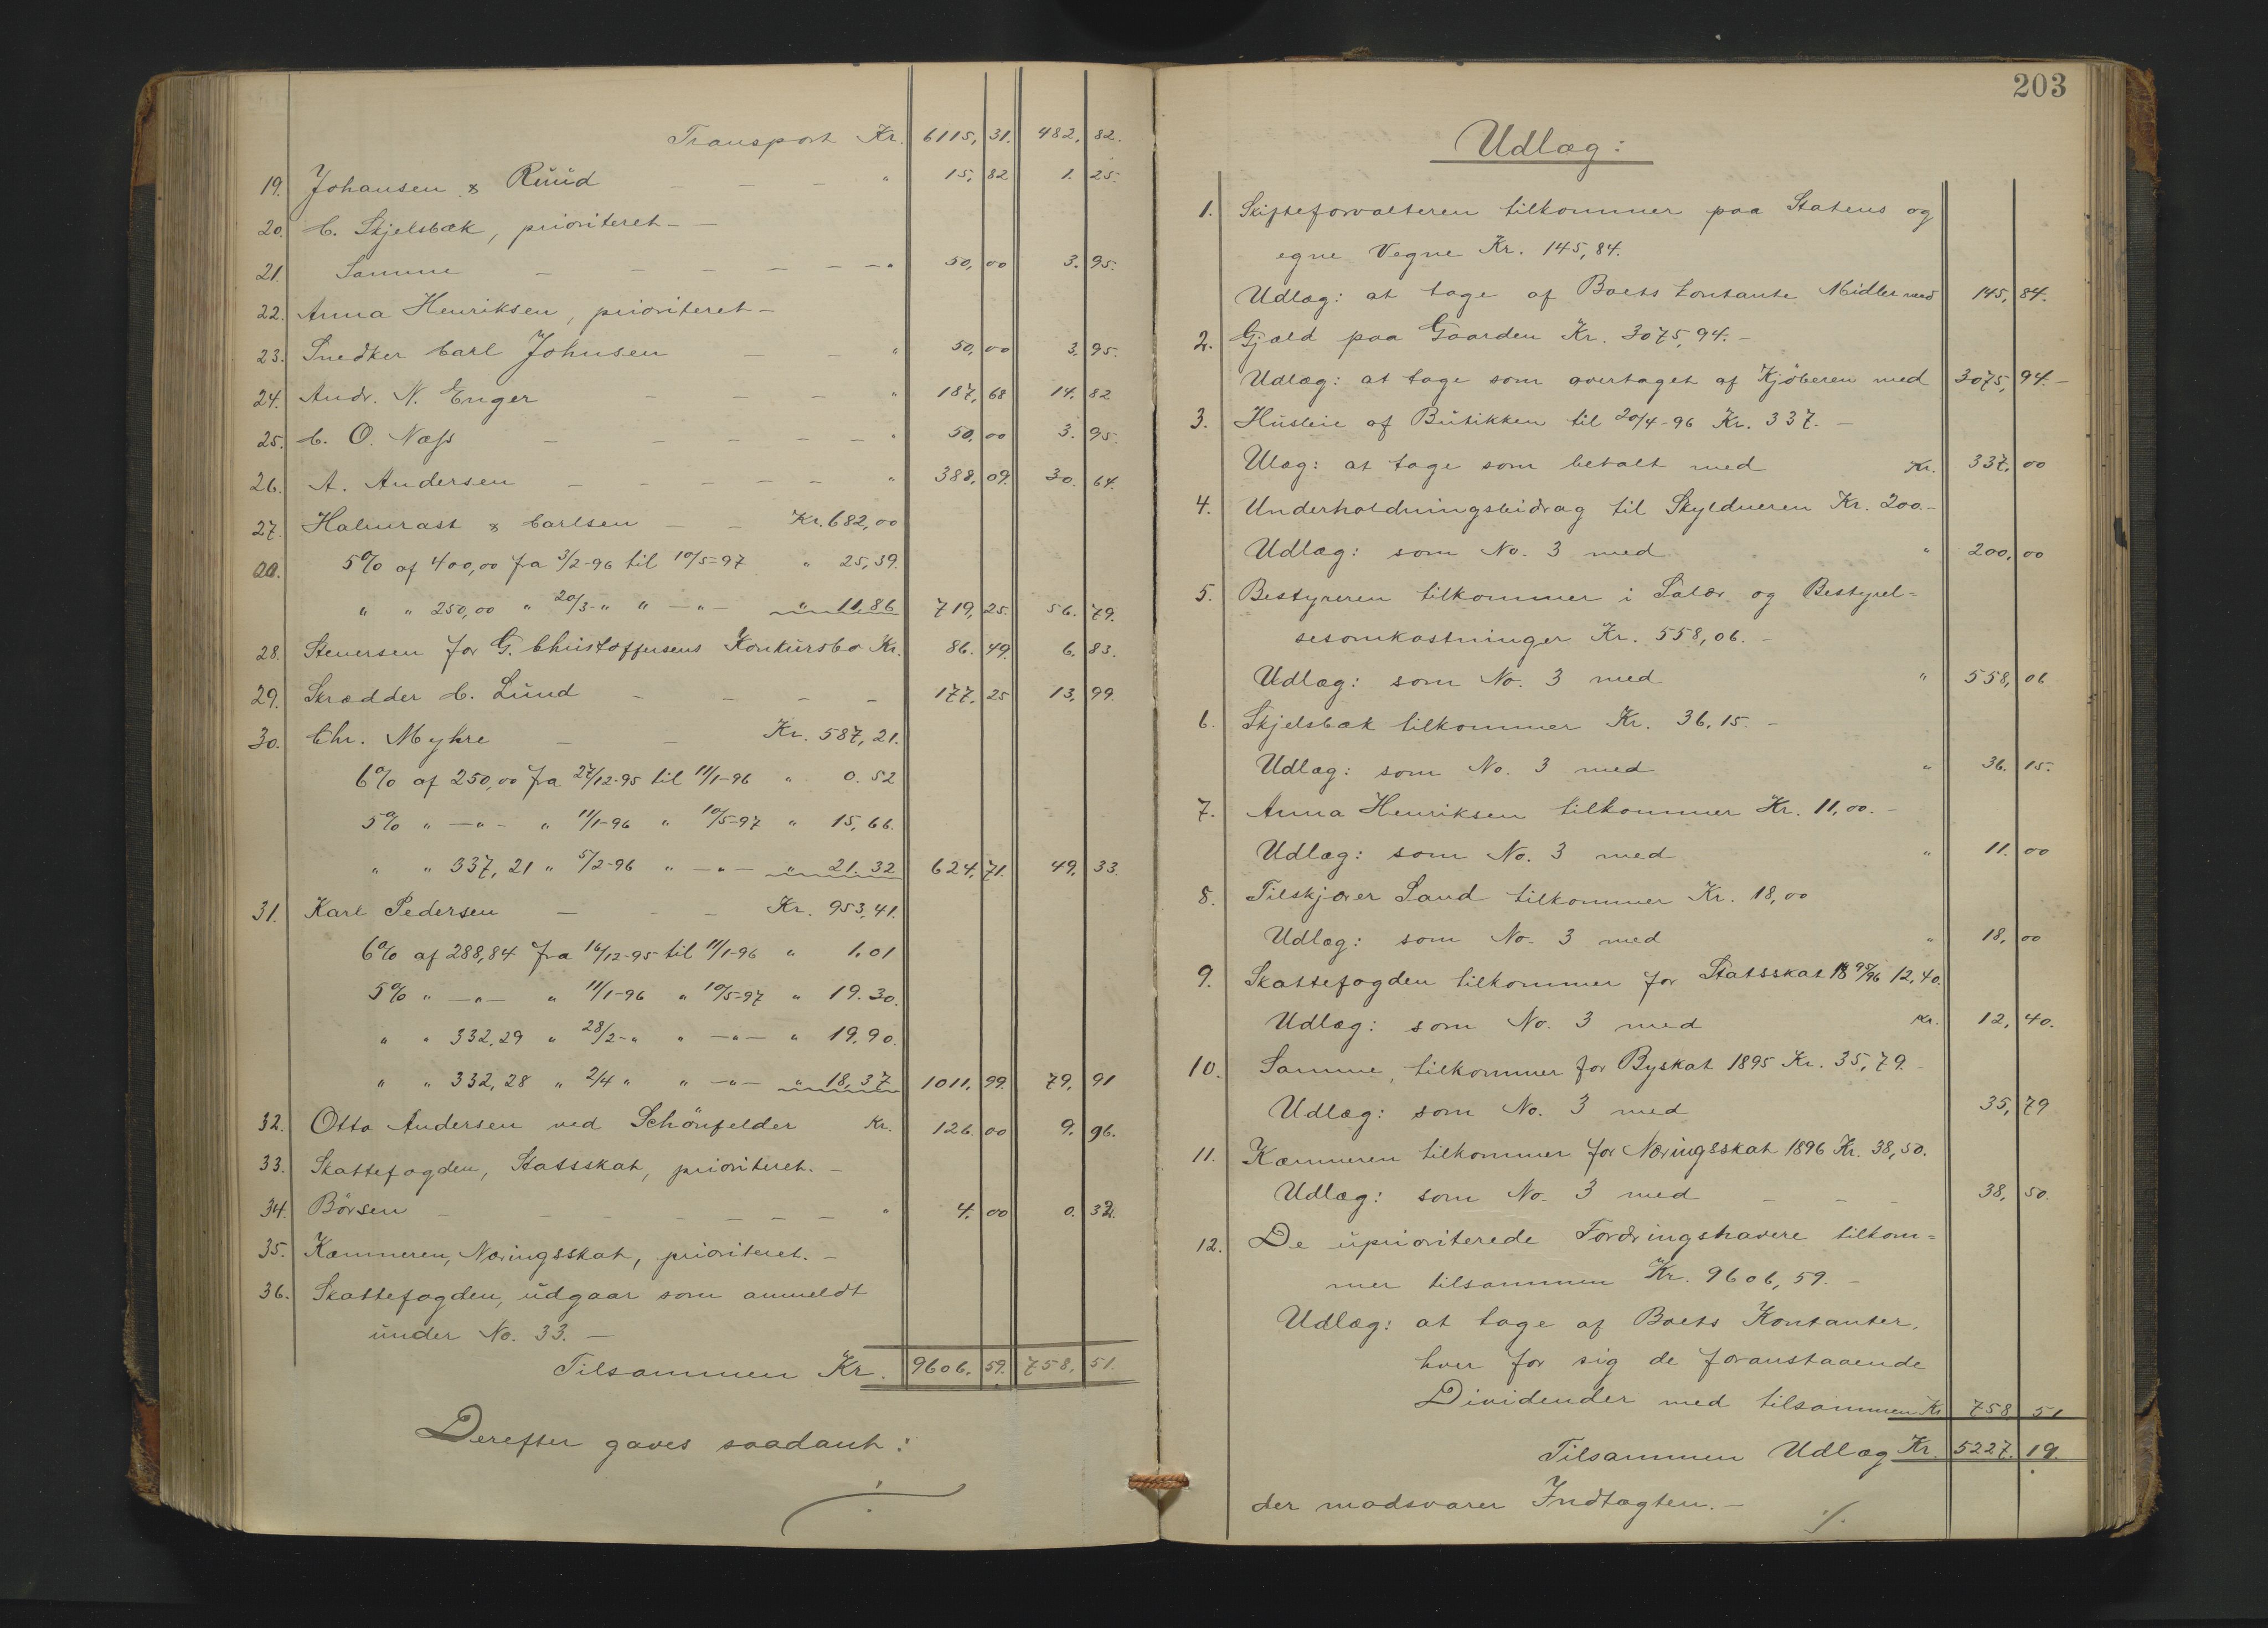 Transport Kr. 6115, 31. 482, 82.
19. Johansen & Ruud — — — " 15, 82 1. 25.
20. C. Skjelsbæk, prioriteret — —
21. Samme — — — — — — " 50, 00 3. 95.
22. Anna Henriksen, prioriteret —
23. Snedker Carl Johnsen — — " 50, 00 3, 95.
24. Andr. N. Enger — — — " 187, 68 14. 82
25. C. O. Næss — — — — — " 50, 00 3. 95.
26. A. Andersen — — — — — " 388, 09. 30. 64.
27. Halmrast & Carlsen — — Kr. 682,00
5% af 400,00 fra 3/2-96 til 10/5-97 " 25,39.
" " 250,00 " 20/3-" " —"— " 11.86 719, 25. 56. 79.
28. Stenersen for G. Christoffersens Konkursbo Kr. 86. 49. 6. 83.
29. Skrædder C. Lund — — — — 177. 25 13, 99.
30. Chr. Myhre — — Kr. 587, 21.
6% af 250,00 fra 27/12-95 til 11/1-96 " 0. 52
5% " —"— " 11/1-96 " 10/5-97 " 15, 66.
" " 337, 21 " 5/2-96 " —"— " 21. 32 624, 71. 49, 33.
31. Karl Pedersen — — — Kr. 953, 41.
6% af 288,84 fra 16/12-95 til 11/1-96 " 1,01
5% " —"— " 11/1-96 " 10/5-97 " 19. 30.
" " 332,29 " 28/2-" " —"— " 19,90.
" " 332, 28 " 2/4 " " —"— " 18,37 1011, 99. 79, 91
32. Otto Andersen ved Schönfelder Kr. 126. 00 9. 96.
33. Skattefogden, Statsskat, prioriteret. —
34. Börsen — — — — — — — " 4, 00 0. 32.
35. Kæmneren, Næringsskat, prioriteret. —
36. Skattefogden, udgaar som anmeldt
under No. 33. —
Tilsammen Kr. 9606. 59. 758. 51.
Derefter gaves saadant:
203
Udlæg:
1. Skifteforvalteren tilkommer paa Statens og
egne Vegne Kr. 145,84.
Udlæg: at tage af Boets kontante Midler med 145, 84.
2. Gjæld paa Gaarden Kr. 3075,94. —
Udlæg: at tage som overtaget af Kjöberen med 3075, 94. —
3. Husleie af Butikken til 20/4-96 Kr. 337. —
Ulæg: at tage som betalt med Kr. 337, 00
4. Underholdningsbidrag til Skyldneren Kr. 200. —
Udlæg: som No. 3 med " 200, 00
5. Bestyreren tilkommer i Salær og Bestyrel=
sesomkostninger Kr. 558,06. —
Udlæg: som No. 3 med " 558, 06
6. Skjelsbæk tilkommer Kr. 36,15. —
Udlæg: som No. 3 med " 36. 15.
7. Anna Henriksen tilkommer Kr. 11,00. —
Udlæg: som No. 3 med " 11. 00
8. Tilskjærer Sand tilkommer Kr. 18,00
Udlæg: som No. 3 med " 18, 00
9. Skattefogden tilkommer for Statsskat 18 95/96 12,40.
Udlæg: som No. 3 med Kr. 12, 40.
10. Samme, tilkommer for Byskat 1895 Kr. 35,79. —
Udlæg: som No. 3 med 35, 79
11. Kæmneren tilkommer for Næringsskat 1896 Kr. 38,50.
Udlæg: som No. 3 med — — — 38, 50.
12. De uprioriterede Fordringshavere tilkom=
mer tilsammen Kr. 9606, 59. —
Udlæg: at tage af Boets Kontanter,
hver for sig de foranstaaende
Dividender med tilsammen Kr 758 51
Tilsammen Udlæg Kr. 5227. 19.
der modsvarer Indtægten. —